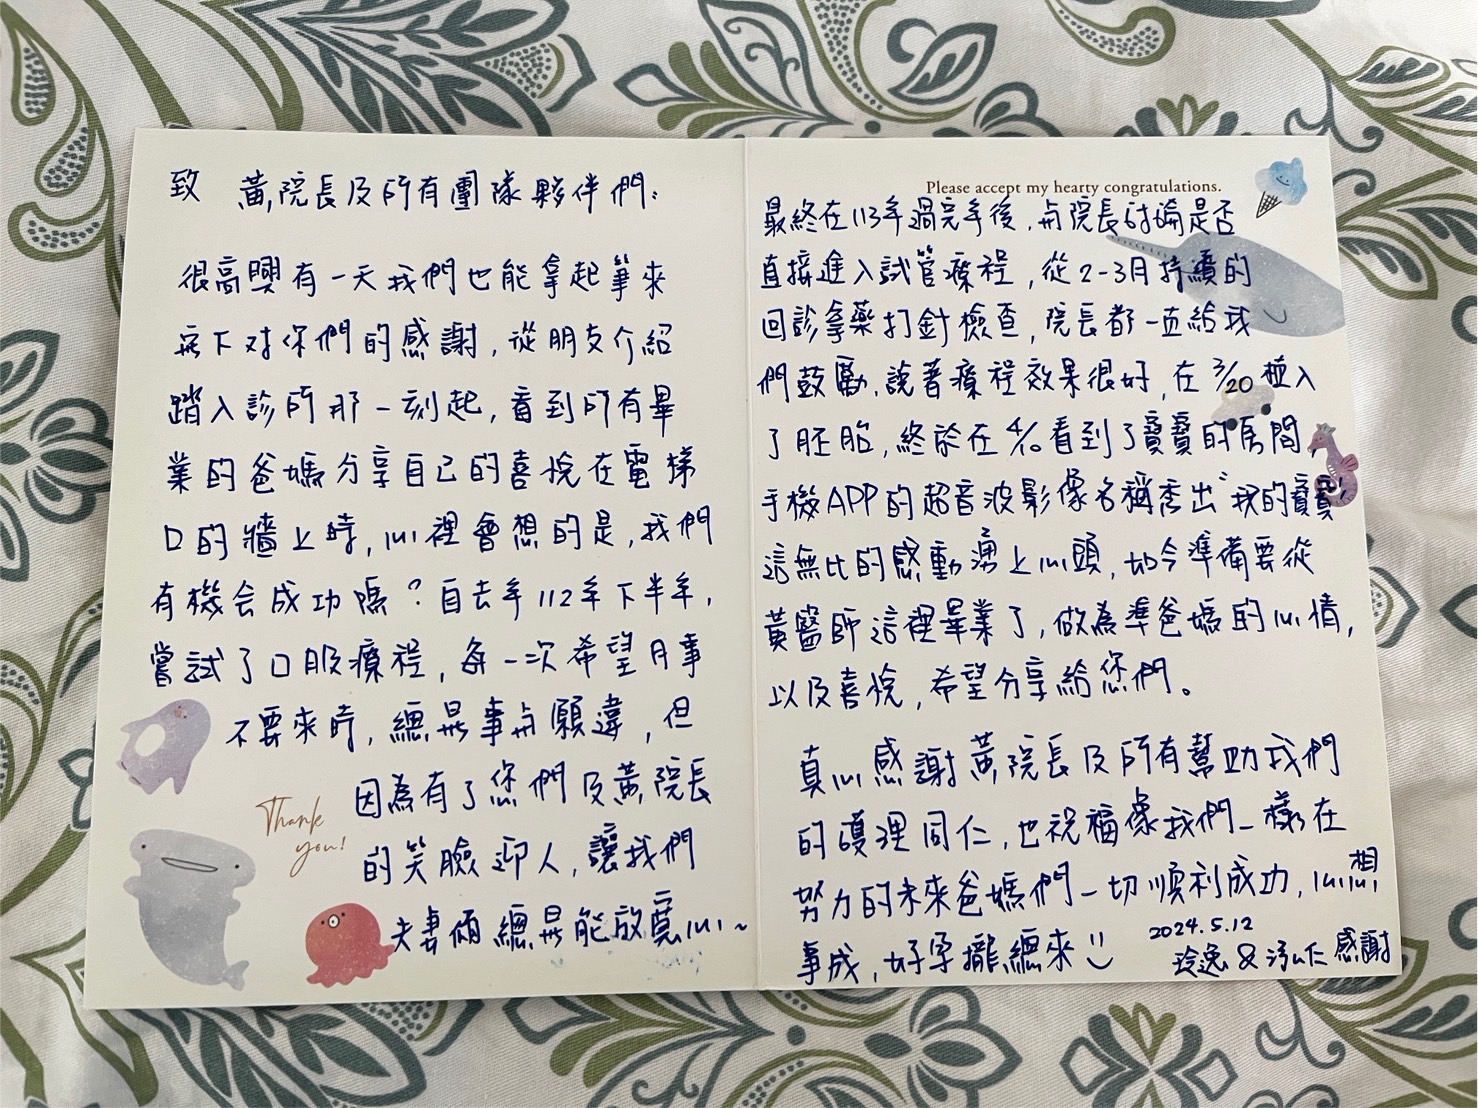 致 黃院長及所有團隊夥伴們:
很高興有一天我們也能拿起筆來
寫下对你們的感謝,從朋友介紹
踏入診所那一刻起,看到所有畢
業的爸媽分享自己的喜悅在電梯
口的牆上時,心裡會想的是,我們
有機会成功嗎?自去年112年下半年,
嘗試了口服療程,每一次希望月事
不要來時,總是事与願違,但
因為有了您們及黃院長
的笑臉迎人,讓我們
夫妻倆總是能放寬心~
Thank
you!
Please accept my hearty congratulations.
最終在113年過完年後,与院長討論是否
直接進入試管療程,從2-3月持續的
回診拿藥打針檢查,院長都一直給我
們鼓勵,說著療程效果很好,在3/20植入
了胚胎,終於在4/10看到了寶寶的房間
手機APP的超音波影像名稱秀出"我的寶寶"
這無比的感動湧上心頭,如今準備要從
黃醫師這裡畢業了,做為準爸媽的心情,
以及喜悅,希望分享給您們。
真心感謝黃院長及所有幫助我們
的護理同仁,也祝福像我們一樣在
努力的未來爸媽們一切順利成功,心想
事成,好孕攏總來
2024.5.12
玲逸 & 仁 感謝